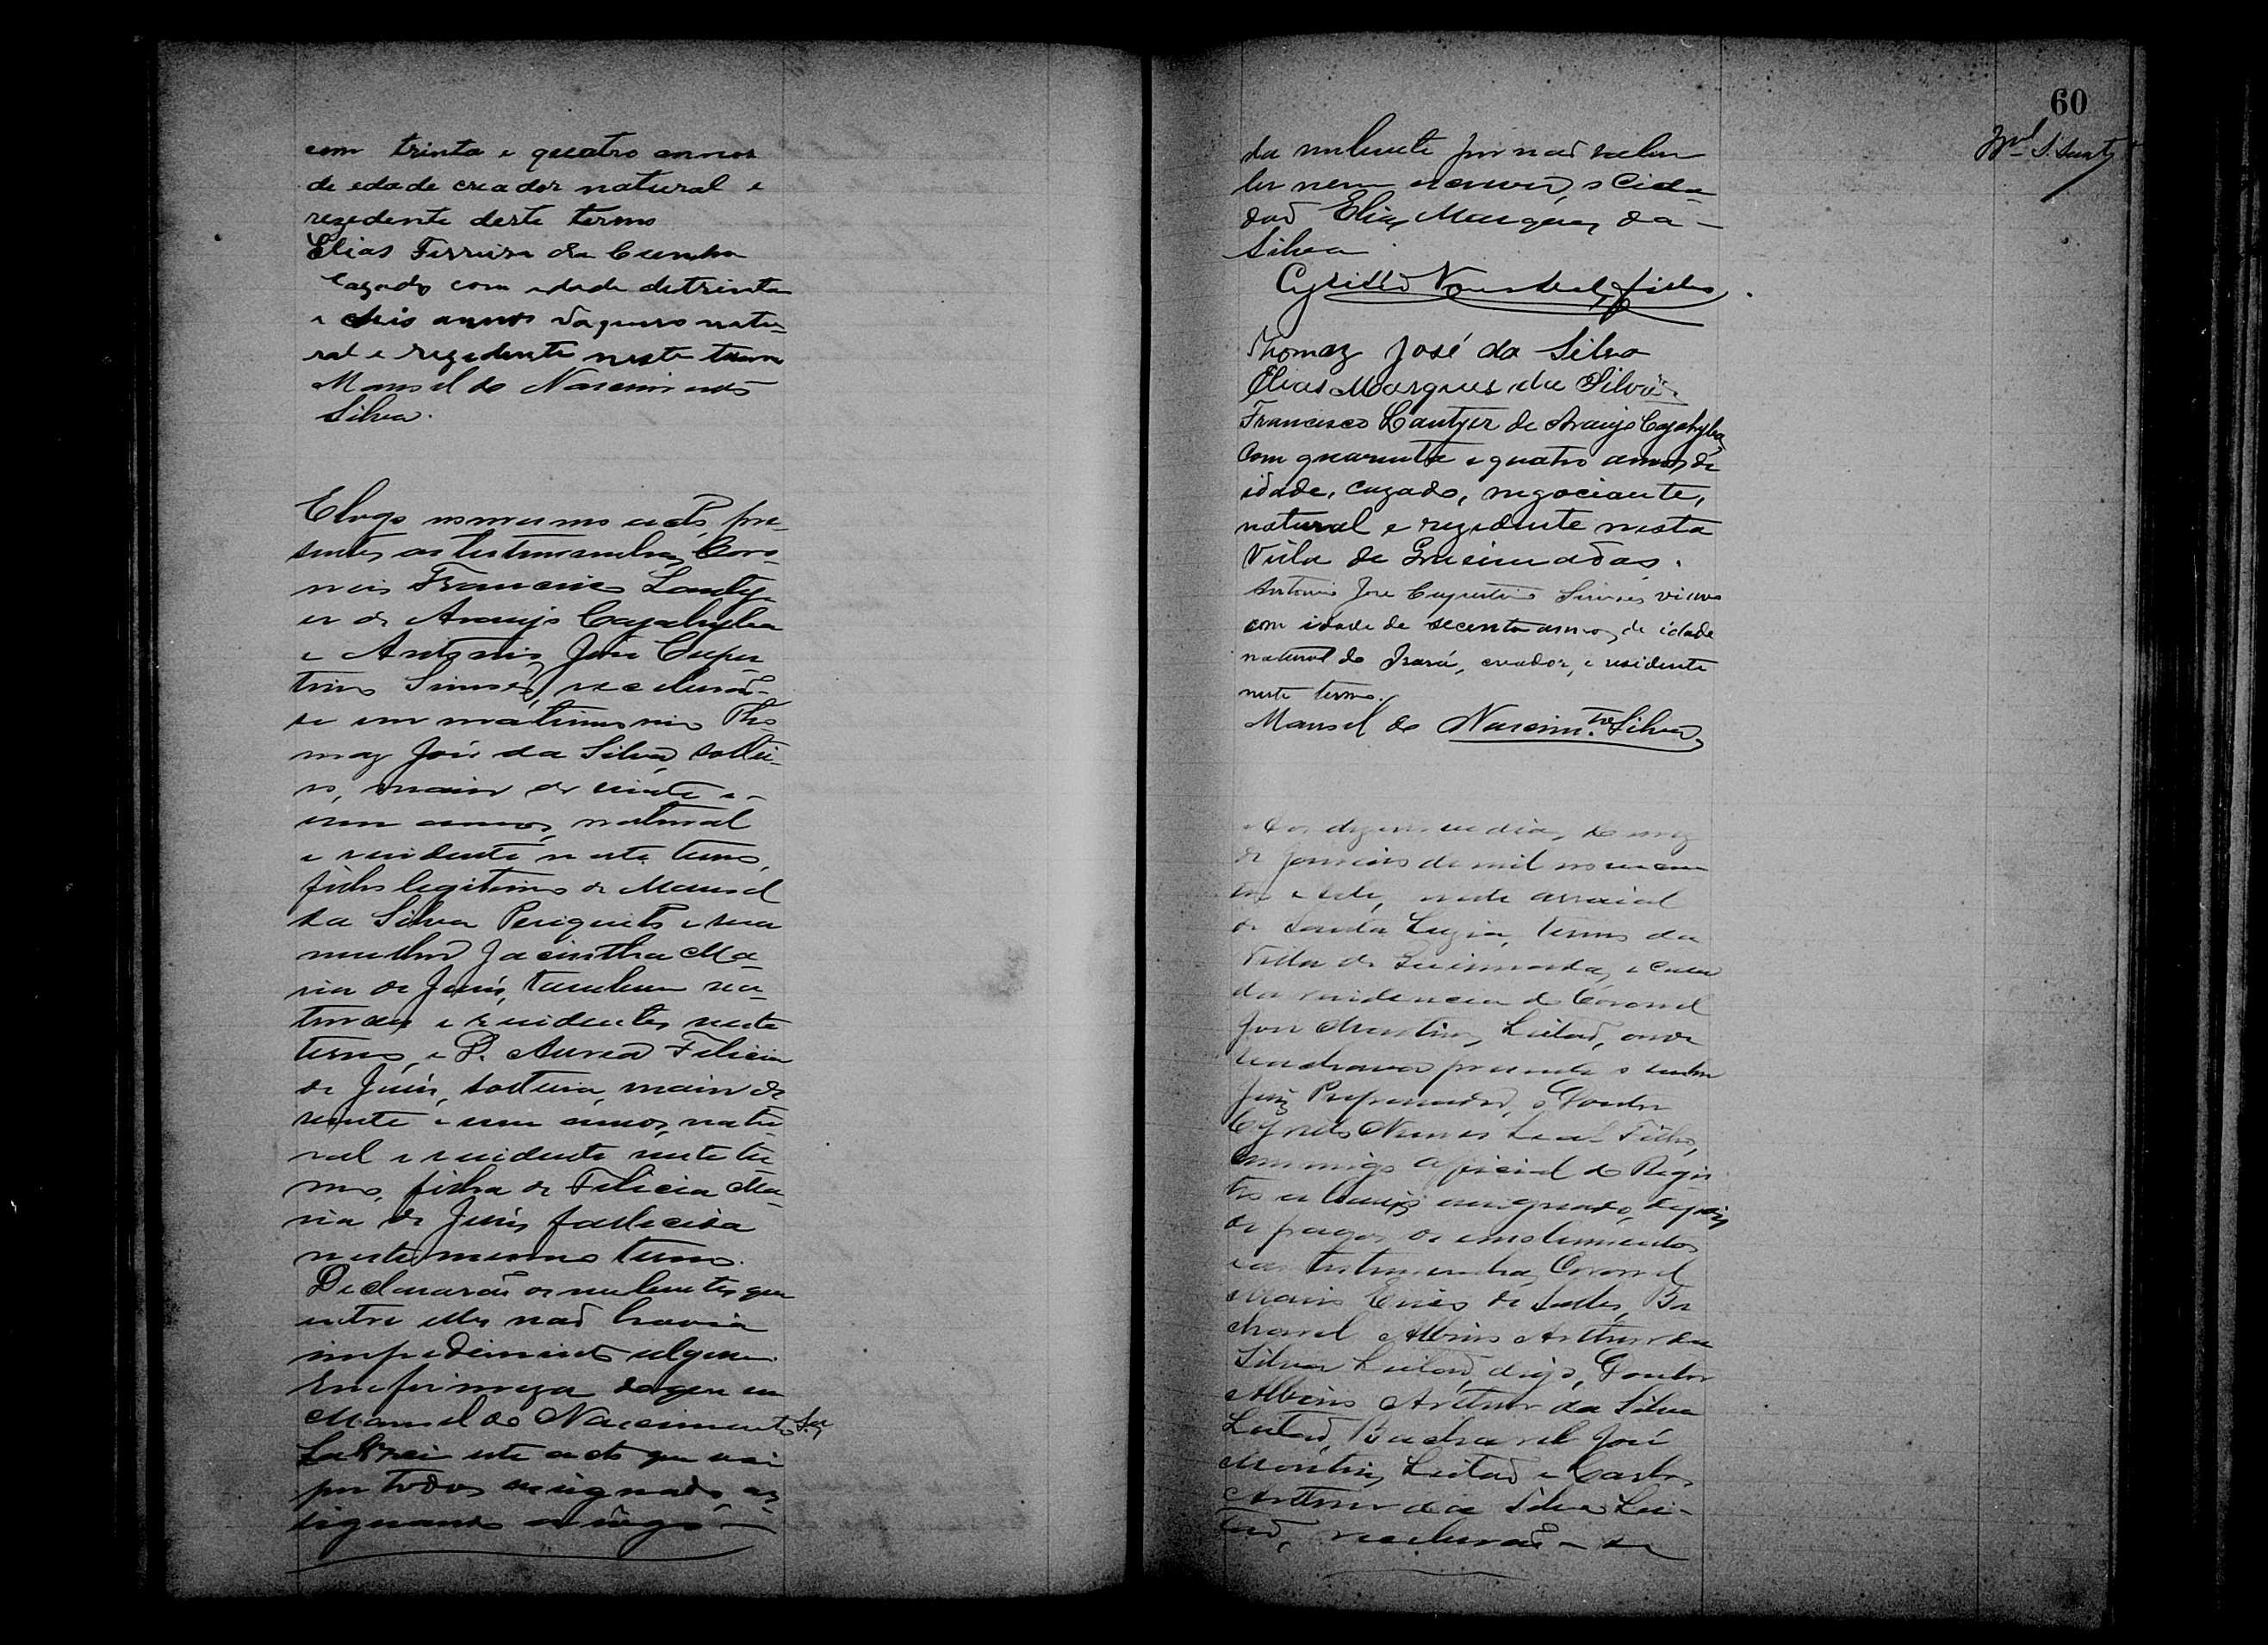 com trinta e quatro annos
de edade creador natural e
rezedente deste termo
Elias Ferreira da Cunha
Cazado com edade de trinta
e seis annos vaqueiro natu-
ral e rezedente neste termo
Manoel do Nascimento
Silva.
E logo no mesmo acto, pre-
sentes as testemunhas, Coro-
neis Francisco Lanty-
er de Araujo Cajahyba
e Antonio José Cuper-
tino Simões, receberão-
se em matrimonio Tho-
maz José da Silva, soltei-
ro, maior de vinte e
um annos, natural
e residente neste termo,
filho legitimo de Manoel
da Silva Periquito e sua
mulher Jacintha Ma-
ria de Jesus, tambem na-
turaes e residentes neste
termo, e D. Aurea Felicia
de Jesus, solteira, maior de
vinte e um annos, natu-
ral e residente neste ter-
mo, filha de Felicia Ma-
ria de Jesus fallecida
neste mesmo termo.
Declararão os nubentes que
entre elles não havia
impedimento algum.
Em firmeza do que eu
Manoel do Nascimento Sa
Lavrei este acto que vai
por todos assignado, as-
signando a rogo
60
da nubente por não saber
ler nem escrever, o Cida-
dão Elias Marques da
Silva
Cyrillo Nunes Leal Filho
Thomaz José da Silva
Elias Marques da Silva.
Francisco Lantyer de Araujo Cajahyba
Com quarenta e quatro annos de
idade, cazado, negociante,
natural e rezidente nesta
Villa de Queimadas.
Antonio José Cupertino Simões, viuvo
com idade de secenta annos de idade
natural do Irará, creador, e residente
neste termo.
Manoel do Nascim.to Silva
Aos dezenove dias do mez
de Janeiro de mil novecen-
tos e sete, neste arraial
de Santa Luzia, termo da
Villa de Queimadas, e casa
da residencia do Coronel
José Martins Leitão, onde
se achava presente o senhor
Juiz Preparador, o Doutor
Cyrillo Nunes Leal Filho,
commigo official do Regis-
tro abaixo assignado, depois
de pagos os emolumentos
e as testemunhas, Coronel
Mario de Salles, Ba-
charel Albino Arthur da
Silva Leitão, digo, Doutor
Albino Arthur da Silva
Leitão, Bacharel José
Martins Leitão e Carlos
Arthur da Silva Lei-
tão, receberão-se